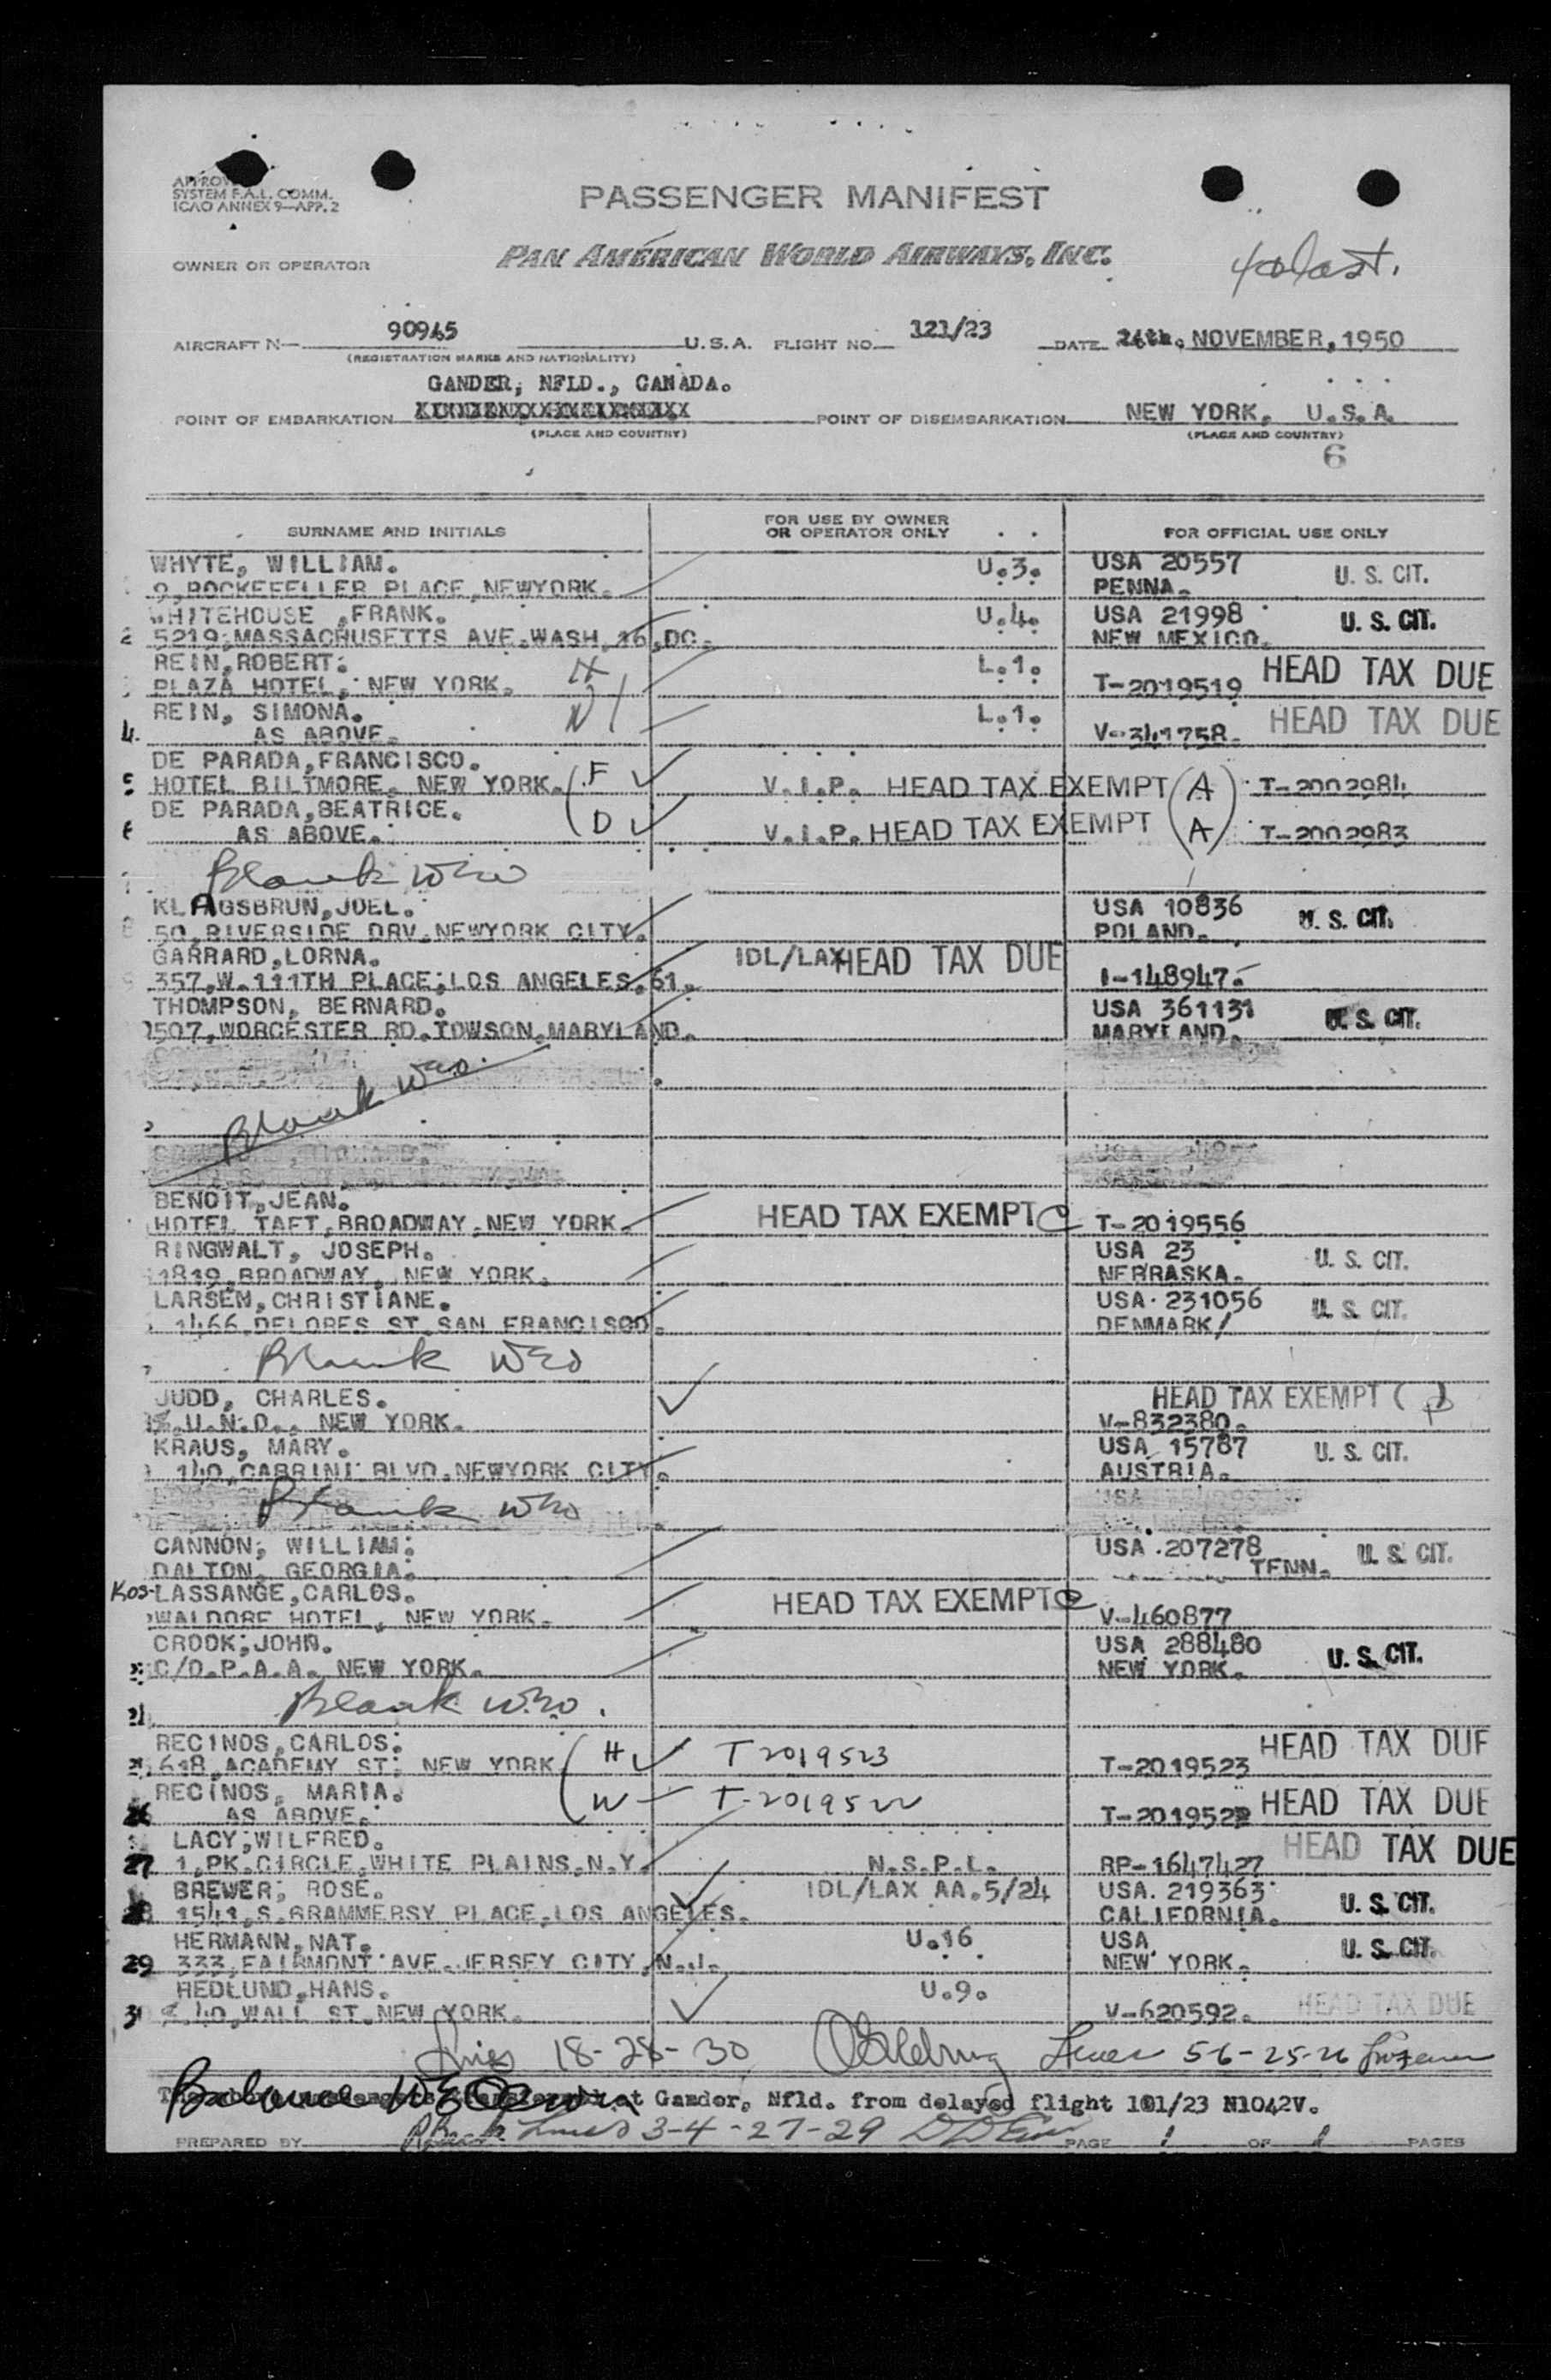 SYSTEM F.A.L. COMM.
ICAO ANNEX 9—APP. 2
PASSENGER MANIFEST
OWNER OR OPERATOR PAN AMERICAN WORLD AIRWAYS, INC.
AIRCRAFT N— 90945 U.S.A. FLIGHT NO. 121/23 DATE 24th. NOVEMBER, 1950
(REGISTRATION MARKS AND NATIONALITY)
GANDER, NFLD., CANADA.
POINT OF EMBARKATION POINT OF DISEMBARKATION NEW YORK, U.S.A.
(PLACE AND COUNTRY) (PLACE AND COUNTRY)
6
SURNAME AND INITIALS FOR USE BY OWNER OR OPERATOR ONLY FOR OFFICIAL USE ONLY
WHYTE, WILLIAM. U.3. USA 20557 U. S. CIT.
9, ROCKEFELLER PLACE, NEWYORK. PENNA.
WHITEHOUSE ,FRANK. U.4. USA 21998 U. S. CIT.
2 5219, MASSACHUSETTS AVE. WASH, 16, DC. NEW MEXICO.
REIN, ROBERT. H L.1. HEAD TAX DUE
PLAZA HOTEL, NEW YORK. T-2019519
REIN, SIMONA. W L.1. HEAD TAX DUE
4. AS ABOVE. V-341758.
DE PARADA, FRANCISCO.
5 HOTEL BILTMORE, NEW YORK. F V.I.P. HEAD TAX EXEMPT (A) T-2002984
DE PARADA, BEATRICE.
6 AS ABOVE. D V.I.P. HEAD TAX EXEMPT (A) T-2002983
Blank
KLAGSBRUN, JOEL. USA 10836 U. S. CIT.
8 50, RIVERSIDE DRV. NEWYORK CITY. POLAND.
GARRARD, LORNA. IDL/LAX HEAD TAX DUE
9 357, W. 111TH PLACE, LOS ANGELES, 61. I-148947.
THOMPSON, BERNARD. USA 361131 U. S. CIT.
507, WORCESTER RD. TOWSON, MARYLAND. MARYLAND.
Blank
BENOIT, JEAN. HEAD TAX EXEMPT C
HOTEL TAFT, BROADWAY, NEW YORK. T-2019556
RINGWALT, JOSEPH. USA 23 U. S. CIT.
1819, BROADWAY, NEW YORK. NEBRASKA.
LARSEN, CHRISTIANE. USA 231056 U. S. CIT.
1466, DELORES ST. SAN FRANCISCO. DENMARK/
Blank
JUDD, CHARLES. HEAD TAX EXEMPT
%, U.N.O., NEW YORK. V-832380.
KRAUS, MARY. USA 15787 U. S. CIT.
140, CABRINI BLVD. NEWYORK CITY. AUSTRIA.
Blank
CANNON, WILLIAM. USA 207278 U. S. CIT.
DALTON, GEORGIA. TENN.
Kos-LASSANGE, CARLOS. HEAD TAX EXEMPT C
WALDORF HOTEL, NEW YORK. V-460877
CROOK, JOHN. USA 288480 U. S. CIT.
C/O. P.A.A. NEW YORK. NEW YORK.
Blank
RECINOS, CARLOS. HEAD TAX DUE
618, ACADEMY ST. NEW YORK H T 2019523 T-2019523
RECINOS, MARIA. HEAD TAX DUE
26 AS ABOVE. W T-2019522 T-2019522
LACY, WILFRED. HEAD TAX DUE
27 1, PK. CIRCLE, WHITE PLAINS, N.Y. N.S.P.L. RP-1647427
BREWER, ROSE. IDL/LAX AA.5/24 USA. 219363 U. S. CIT.
28 1541, S. GRAMMERSY PLACE, LOS ANGELES. CALIFORNIA.
HERMANN, NAT. U.16 USA U. S. CIT.
29 333, FAIRMONT AVE. JERSEY CITY, N.J. NEW YORK.
HEDLUND, HANS. U.9. HEAD TAX DUE
30 % 40, WALL ST. NEW YORK. V-620592.
18-28-30 5-6-25-26
at Gander, Nfld. from delayed flight 101/23 N1042V.
PREPARED BY 3-4-27-29 PAGE 1 OF 1 PAGES